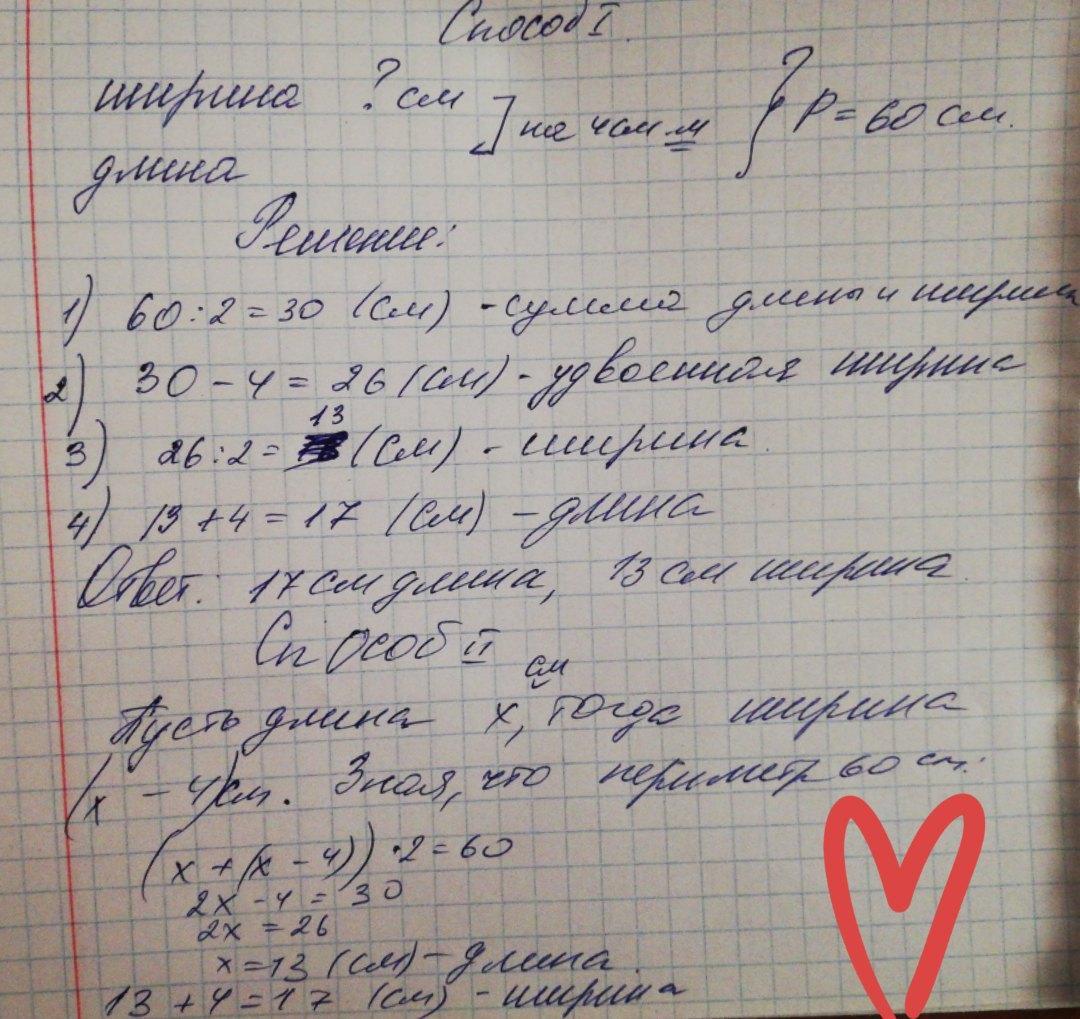 Способ I.
ширина ? см ] на 4 см м } ? P = 60 см.
длина
Решение:
1) 60 : 2 = 30 (см) - сумма длины и ширины
2) 30 - 4 = 26 (см) - удвоенная ширина
3) 26 : 2 = 13 (см) - ширина.
4) 13 + 4 = 17 (см) - длина
Ответ: 17 см длина, 13 см ширина.
Способ II
Пусть длина x см, тогда ширина
(x - 4) см. Зная, что периметр 60 см:
(x + (x - 4)) · 2 = 60
2x - 4 = 30
2x = 26
x = 13 (см) - длина.
13 + 4 = 17 (см) - ширина